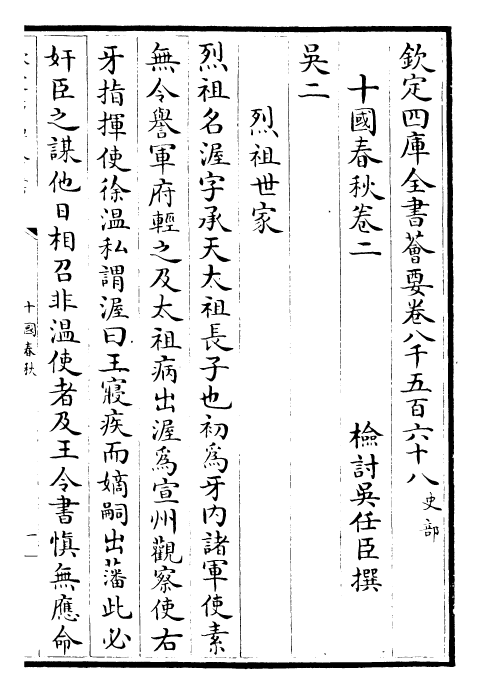 欽定四庫全書薈要卷八千五百六十八 史部
十國春秋卷二 檢討吳任臣撰
吳二
烈祖世家
烈祖名渥字承天太祖長子也初爲牙内諸軍使素
無令譽軍府輕之及太祖病出渥爲宣州觀察使右
牙指揮使徐温私謂渥曰王寢疾而嫡嗣出藩此必
奸臣之謀他日相召非温使者及王令書慎無應命
十國春秋
一